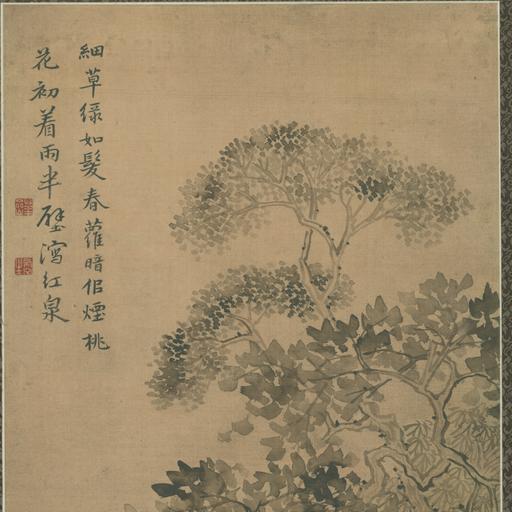 細草綠如髮春蘿暗佀煙桃
花初着雨半壁瀉红泉